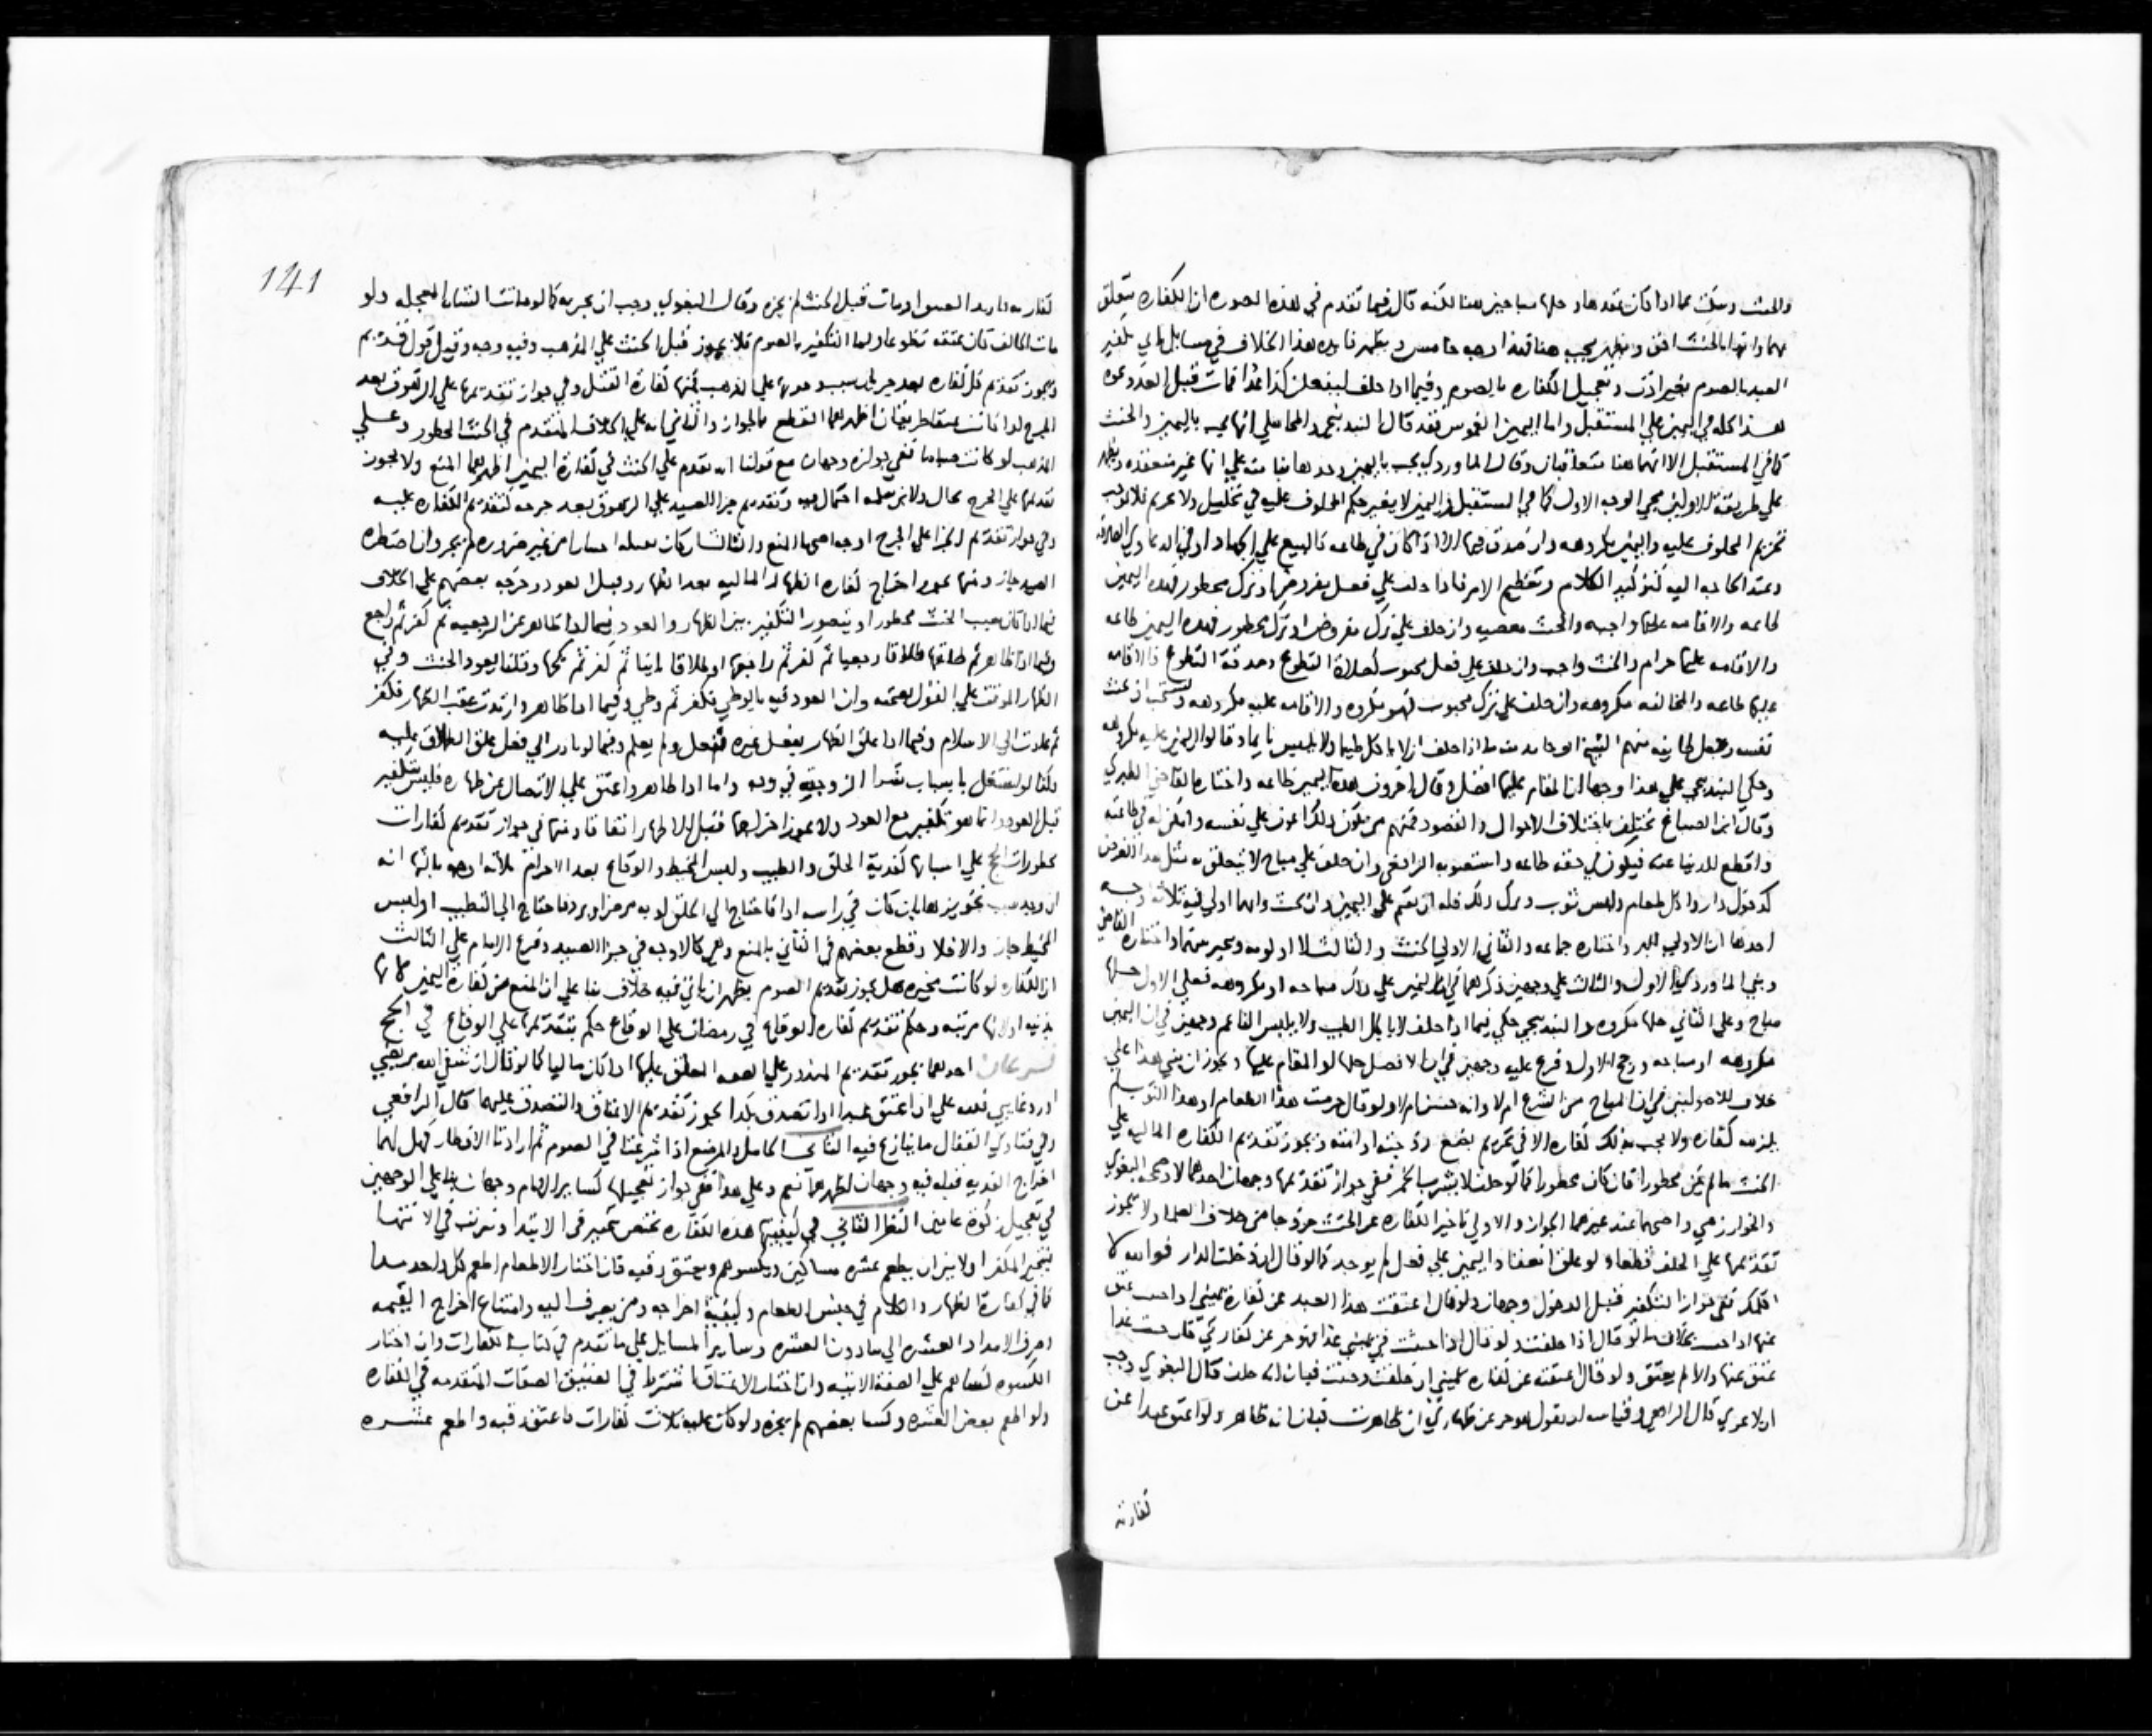 والحنث وسكت عما اذا كان عقدها وحلها مباحين هنا لكنه قال فيما تقدم في هذه الصورة ان الكفاره يتعلق
العبد بالصوم بغير اذن وتعجيل الكفاره بالصوم وفيما اذا حلف ليفعلن كذا غدا فمات قبل الغد وعوه
هذا كله في اليمين علي المستقبل واما اليمين الغموس فقد قال البندنيجي والمحاملي انها يجب باليمين والحنث
كما في المستقبل الا انهما هنا متعلقان وقال الماوردي يجب باليمين وحدها بناء منه علي انها غير منعقده
علي طريقة الاولين يجي الوجه الاول كما في المستقبل واليمين لا يغير حكم المحلوف عليه في تحليل ولا تحريم فلا يوجب
تحريم المحلوف عليه واليمين مكروهه وان صدق فيها الا اذا كان في طاعه كالبيع علي الجهاد او في الدعاوي
وعند الحاجه اليه كتوكيد الكلام وتعظيم الامر فاذا حلف علي فعل مفروض او ترك محظور فهذه اليمين
طاعه والاقامه عليها واجبه والحنث معصيه وان حلف علي ترك مفروض او ترك محظور فهذه اليمين طاعه
والاقامه عليها حرام والحنث واجب وان حلف علي فعل محبوب كصلاة التطوع وصدقة التطوع فالاقامه
عليها طاعه والمخالفه مكروهه وان حلف علي ترك محبوب فهو مكروه والاقامه عليه مكروهه ويستحب ان يحنث
نفسه وجعل طايفه منهم الشيخ ابو حامد منه ما اذا حلف ان لا ياكل طيبا ولا يلبس ناعما وقالوا اليمين عليه مكروهه
وحكي البندنيجي علي هذا وجها ان المقام عليها افضل وقال اخرون هذه اليمين طاعه واختاره القاضي الطبري
وقال ابن الصباغ يختلف باختلاف الاحوال والقصود فمنهم من يكون ذلك اعون علي نفسه
واقطع للدنيا عنه فيكون في حقه طاعه واستصوبه الرافعي وان حلف علي مباح لا يتعلق به مثل هذا الغرض
كدخول دار واكل طعام ولبس ثوب وترك ذلك فله ان يقيم علي اليمين وان يحنث وايهما اولي فيه ثلاثة اوجه
احدها ان الاولي البر واختاره جماعه والثاني الاولي الحنث والثالث لا اولويه ويخير بينهما واختاره القاضي
وبني الماوردي الاول والثالث علي وجهين ذكرهما في ان اليمين علي ذلك مباحه او مكروهه فعلي الاول حلها
مباح وعلي الثاني حلها مكروه والبندنيجي حكي فيما اذا حلف لا ياكل الطيب ولا يلبس الناعم وجهين في ان اليمين
مكروهه او مباحه ورجح الاول وفرع عليه وجهين في ان الافضل حلها او المقام عليها ويجوز ان يبني هذا علي
خلاف للاصوليين في ان المباح من الشرع ام لا وانه حسن ام لا ولو قال حرمت هذا الطعام او هذا الثوب لم
يلزمه كفاره ولا يجب بذلك كفاره الا في تحريم بضع زوجته او امته ويجوز تقديم الكفاره الماليه علي
الحنث ما لم يكن محظورا فان كان محظورا كما لو حلف لا يشرب الخمر ففي جواز تقديمها وجهان احدهما لا وصححه البغوي
والخوارزمي واصحهما عند غيرهما الجواز والاولي تاخير الكفاره عن الحنث خروجا من خلاف العلماء ولا يجوز
تقديمها علي الحلف قطعا ولو علق انعقاد اليمين علي فعل لم يوجد كما لو قال ان دخلت الدار فوالله لا
اكلمك ففي جواز التكفير قبل الدخول وجهان ولو قال اعتقت هذا العبد عن كفارة يميني اذا حنثت عتق
عنها اذا حنث بخلاف ما لو قال اذا حلفت ولو قال اذا حنثت في يميني غدا فهو حر عن كفارتي فان حنث غدا
عتق عنها والا لم يعتق ولو قال اعتقته عن كفارة يميني ان حلفت وحنثت فبان انه حلف قال البغوي وجب
ان لا يجزي قال الرافعي وقياسه ان يقول هو حر عن ظهاري ان ظاهرت فبان انه ظاهر ولو اعتق عبدا عن
كفارته
141
كفارته فارتد العبد او مات قبل الحنث لم يجزه وقال البغوي وجب ان يجزيه كما لو ماتت الشاة المعجله ولو
مات الحالف كان عتقه تطوعا واما التكفير بالصوم فلا يجوز قبل الحنث علي المذهب وفيه وجه وقيل قول قديم
ويجوز تقديم كل كفاره بعد جريان سبب وجوبها علي المذهب فمنها كفارة القتل وفي جواز تقديمها علي الزهوق بعد
الجرح اذا كانت عتقا طريقان اظهرهما القطع بالجواز والثاني انه علي الخلاف المتقدم في الحنث المحظور وعلي
المذهب لو كانت صياما ففي جوازه وجهان مع قولنا انه تقدم علي الحنث في كفارة اليمين اظهرهما المنع ولا يجوز
تقديمها علي الجرح بحال ولابن سلمه احتمال فيه وتقديم جزا الصيد علي الزهوق بعد جرحه كتقديم الكفاره عليه
وفي جواز تقديم الجزا علي الجرح اوجه اصحها المنع والثالث ان كان بقتله اختيارا من غير ضروره لم يجز وان اضطره
الصيد جاز ومنها يجوز اخراج كفاره الظهار الماليه بعد الظهار وقبل العود وخرجه بعضهم علي الخلاف
فيما اذا كان سبب الحنث محظورا ويتصور التكفير بين الظهار والعود فيما اذا ظاهر عن الرجعيه ثم كفر ثم راجع
وفيما اذا ظاهر ثم طلقها طلاقا رجعيا ثم كفر ثم راجعها او طلاقا باينا ثم كفر ثم نكحها وقلنا يعود الحنث وفي
الظهار الموقت علي القول بصحته وان العود فيه بالوطي فكفر ثم وطي وفيما اذا ظاهر وارتدت عقب الظهار فكفر
ثم عادت الي الاسلام وفيما اذا علق الظهار بفعل غيره ففعل ولم يعلم وفيما لو بادر الي فعل علق الطلاق عليه
وكذا لو اشتغل باسباب شرا الزوجه في وجه واما اذا ظاهر واعتق علي الاتصال عن ظهاره فليس بتكفير
قبل العود وانما هو تكفير مع العود ولا يجوز اخراجها قبل الظهار اتفاقا ومنها في جواز تقديم كفارات
محظورات الحج علي اسبابها كفدية الحلق والطيب ولبس المخيط والوقاع بعد الاحرام ثلاثة اوجه ثالثها انه
ان وجد سبب تجويزها بان كان في راسه اذا فاحتاج الي الحلق او به مرض او برد فاحتاج الي التطيب او لبس
المخيط جاز والا فلا وقطع بعضهم في الثاني بالمنع وهي كالاوجه في جزا الصيد وفرع الامام علي الثالث
ان الكفاره لو كانت مخيره هل يجوز تقديم الصوم يظهر ان ياتي فيه خلاف بناء علي ان المنع من كفارة اليمين لانها
بدنيه او لانها مرتبه وحكم تقديم كفاره الوقاع في رمضان علي الوقاع حكم تقديمها علي الوقاع في الحج
فرعان احدهما يجوز تقديم المنذور علي الصفه المعلق عليها اذا كان ماليا كما لو قال ان شفي الله مريضي
او رد غايبي فلله علي ان اعتق عبدا او اتصدق بكذا يجوز تقديم الاعتاق والتصدق عليهما قال الرافعي
وفي فتاوي القفال ما ينازع فيه الثاني الحامل والمرضع اذا شرعتا في الصوم ثم ارادتا الافطار فهل لهما
اخراج الفديه قبله فيه وجهان اظهرهما نعم وعلي هذا ففي جواز تعجيلها لساير الايام وجهان بناء علي الوجهين
في تعجيل زكوة عامين النظر الثاني في كيفيتها هذه الكفاره تختص بتخيير في الابتدا وترتيب في الانتها
فيتخير المكفر اولا بين ان يطعم عشره مساكين ويكسوهم ويعتق رقبه فان اختار الاطعام اطعم كل واحد مدا
كما في كفارة الظهار والكلام في جنس الطعام وكيفية اخراجه ومن يصرف اليه وامتناع اخراج القيمه
وصرف الامداد العشره الي ما دون العشره وساير المسايل علي ما تقدم في كتاب الكفارات وان اختار
الكسوه كساهم علي الصفة الاتيه وان اختار الاعتاق اشترط في العتيق الصفات المتقدمه في الكفاره
ولو اطعم بعض العشره وكسا بعضهم لم يجزه ولو كان عليه ثلاث كفارات فاعتق رقبه واطعم عشره